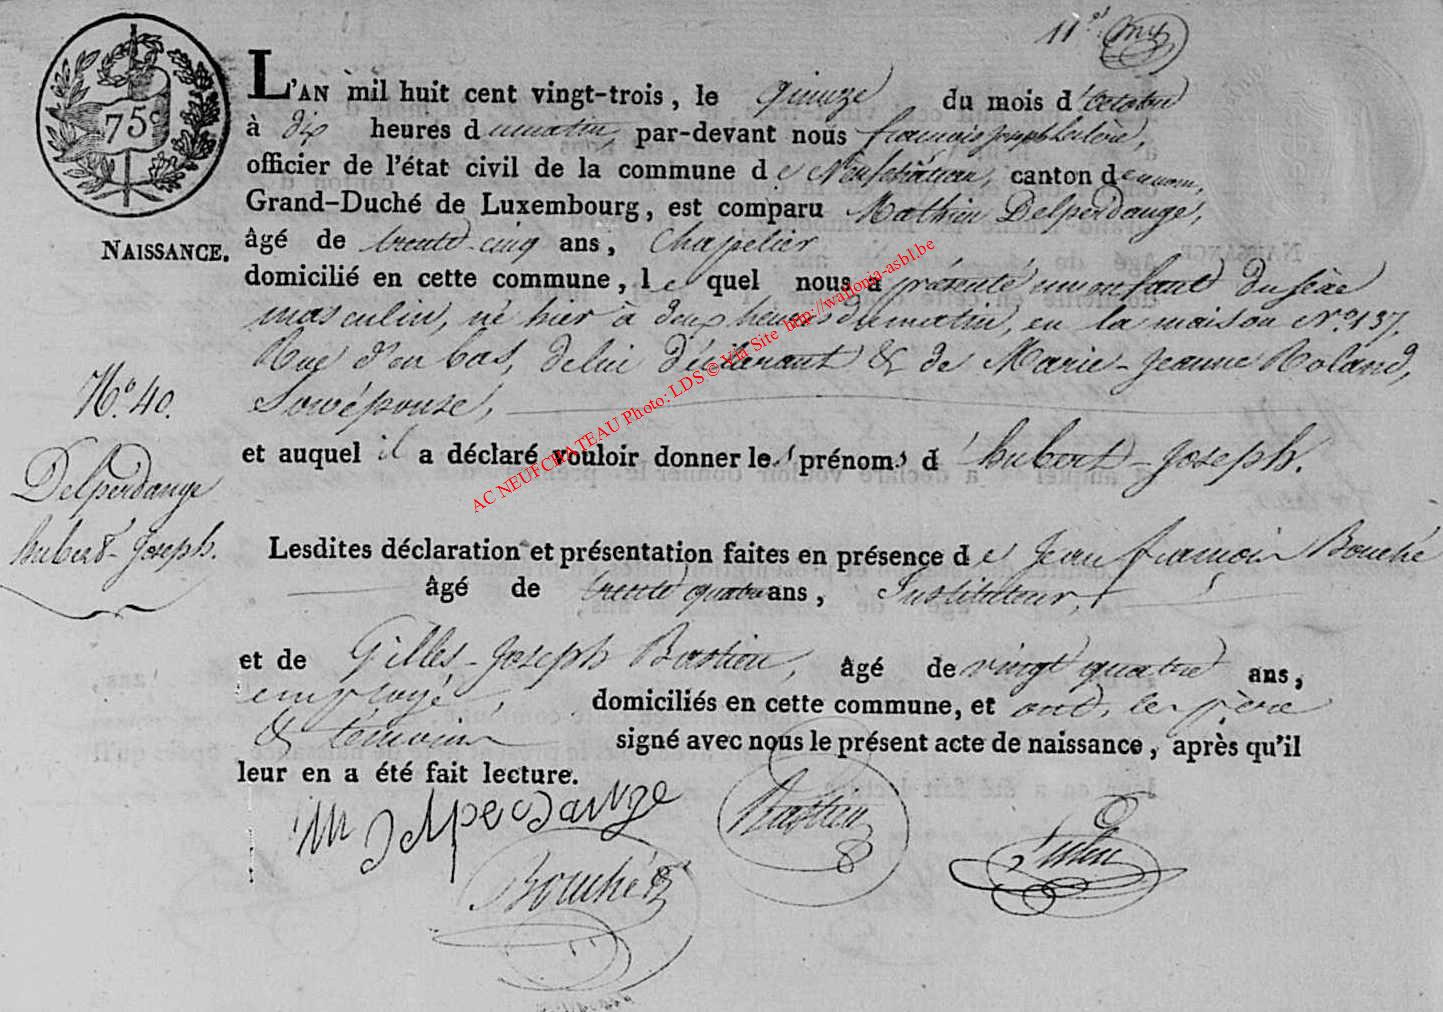 11e
75 c
L'AN mil huit cent vingt-trois, le quinze du mois d'octobre
à dix heures du matin, par-devant nous françois joseph
officier de l'état civil de la commune de Neufchâteau, canton du même nom,
Grand-Duché de Luxembourg, est comparu Mathieu Delperdange,
NAISSANCE.
âgé de trente-cinq ans, Chapelier
domicilié en cette commune, lequel nous a présenté un enfant du sèxe
masculin, né hier à deux heures du matin, en la maison No. 137,
Rue d'en bas, de lui déclarant & de Marie-Jeanne Roland,
No. 40.
Son épouse,
et auquel il a déclaré vouloir donner les prénoms d'hubert-Joseph.
Delperdange
hubert-Joseph.
Lesdites déclaration et présentation faites en présence de Jean françois Bouché
âgé de trente quatre ans, Instituteur,
et de Gilles-Joseph Bastien, âgé de vingt quatre ans,
employé, domiciliés en cette commune, et ont, les père
& témoins signé avec nous le présent acte de naissance, après qu'il
leur en a été fait lecture.
M Delperdange
Bastien
Bouché
AC NEUFCHATEAU Photo: LDS © Via Site http://wallonia-asbl.be